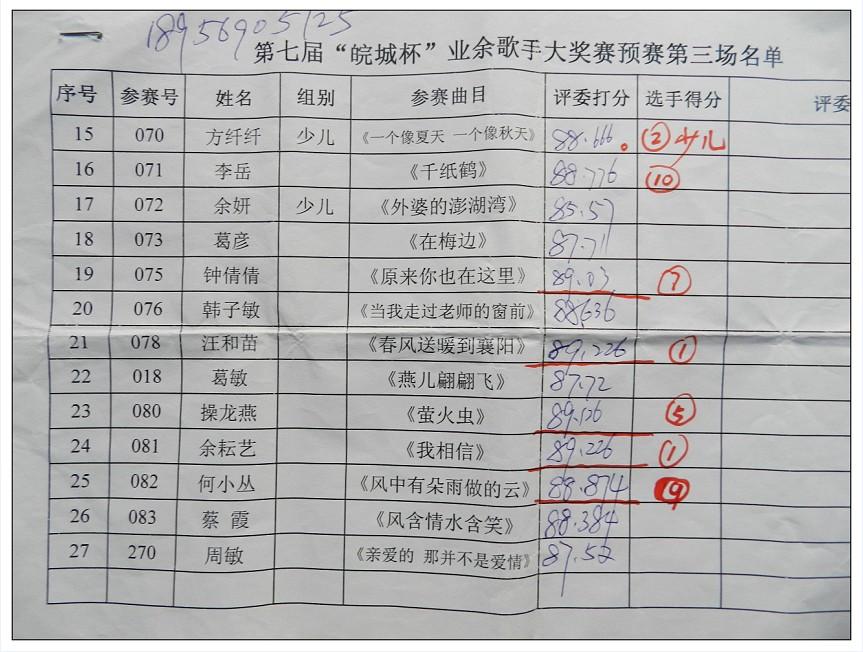 18956905125
第七届“皖城杯”业余歌手大奖赛预赛第三场名单
序号 参赛号 姓名 组别 参赛曲目 评委打分 选手得分 评委
15 070 方纤纤 少儿 《一个像夏天 一个像秋天》 88.666 ② 少儿
16 071 李岳 《千纸鹤》 88.776 ⑩
17 072 余妍 少儿 《外婆的澎湖湾》 85.57
18 073 葛彦 《在梅边》 87.71
19 075 钟倩倩 《原来你也在这里》 89.03 ⑦
20 076 韩子敏 《当我走过老师的窗前》 88.636
21 078 汪和苗 《春风送暖到襄阳》 89.226 ①
22 018 葛敏 《燕儿翩翩飞》 87.72
23 080 操龙燕 《萤火虫》 89.126 ⑤
24 081 余耘艺 《我相信》 89.226 ①
25 082 何小丛 《风中有朵雨做的云》 88.874 ⑨
26 083 蔡 霞 《风含情水含笑》 88.384
27 270 周敏 《亲爱的 那并不是爱情》 87.52